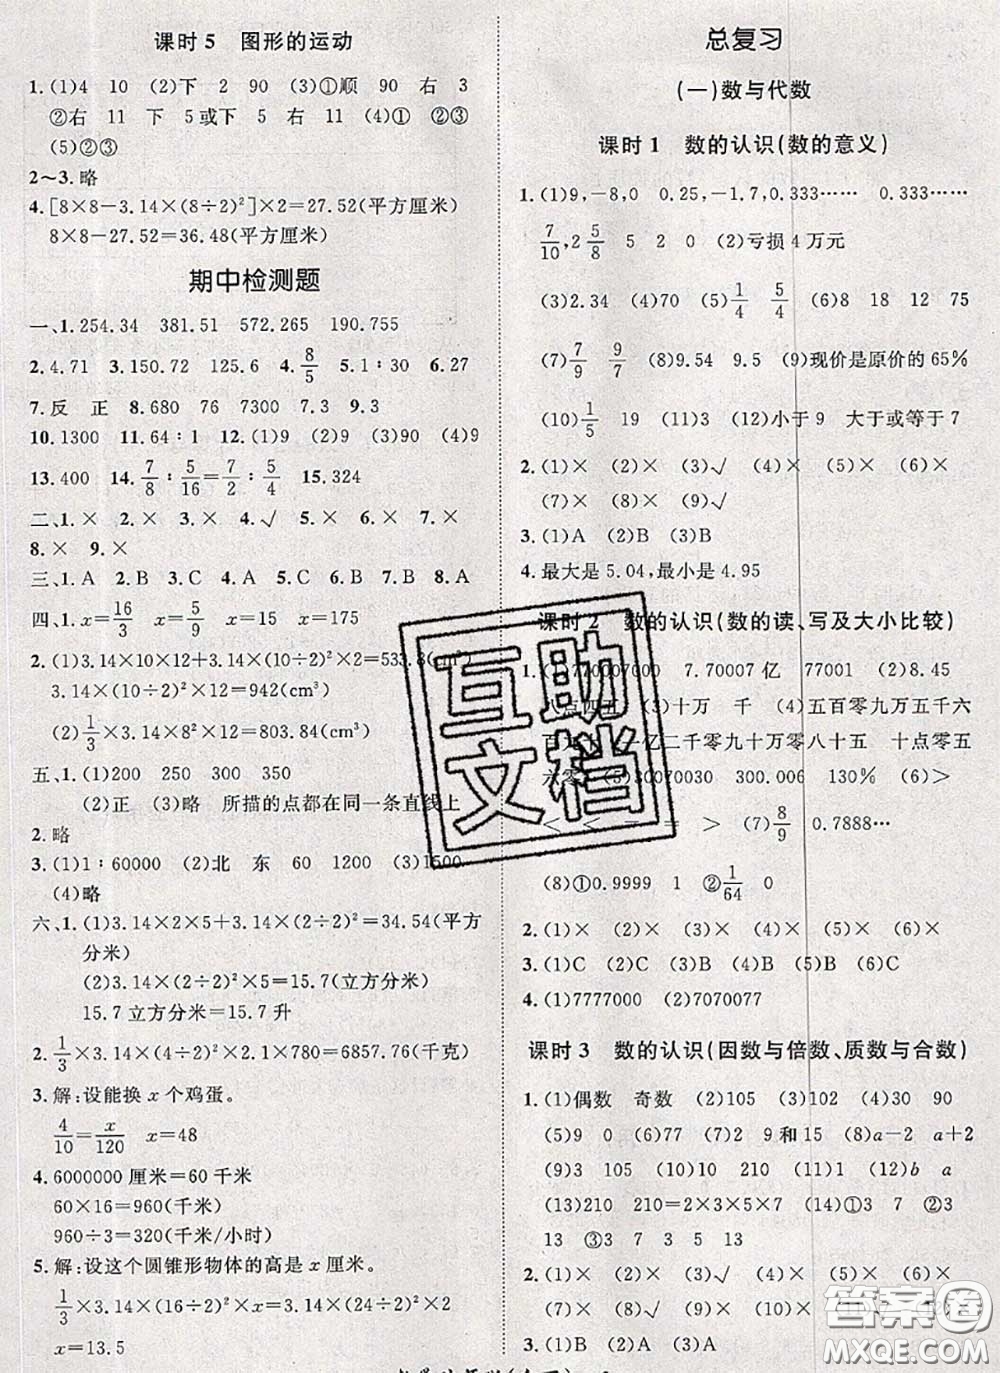 课时5 图形的运动
1.(1)4 10 (2)下 2 90 (3)①顺 90 右 3
②右 11 下 5或下 5 右 11 (4)① ②③
(5)②③
2～3.略
4.[8×8－3.14×(8÷2)²]×2＝27.52(平方厘米)
8×8－27.52＝36.48(平方厘米)
期中检测题
一、1.254.34 381.51 572.265 190.755
2.4.71 3.150.72 125.6 4.8/5 5.1∶30 6.27
7.反 正 8.680 76 7300 7.3 9.3
10.1300 11.64∶1 12.(1)9 (2)9 (3)90 (4)9
13.400 14.7/8∶5/16＝7/2∶5/4 15.324
二、1.× 2.× 3.× 4.√ 5.× 6.× 7.×
8.× 9.×
三、1.A 2.B 3.C 4.A 5.C 6.B 7.B 8.A
四、1.x＝16/3 x＝5/9 x＝15 x＝175
2.(1)3.14×10×12＋3.14×(10÷2)²×2＝533.8(cm²)
3.14×(10÷2)²×12＝942(cm³)
(2)1/3×3.14×8²×12＝803.84(cm³)
五、1.(1)200 250 300 350
(2)正 (3)略 所描的点都在同一条直线上
2.略
3.(1)1∶60000 (2)北 东 60 1200 (3)1500
(4)略
六、1.(1)3.14×2×5＋3.14×(2÷2)²＝34.54(平方
分米)
(2)3.14×(2÷2)²×5＝15.7(立方分米)
15.7立方分米＝15.7升
2.1/3×3.14×(4÷2)²×2.1×780＝6857.76(千克)
3.解:设能换x个鸡蛋。
4/10＝x/120 x＝48
4.6000000厘米＝60千米
60×16＝960(千米)
960÷3＝320(千米/小时)
5.解:设这个圆锥形物体的高是x厘米。
1/3×3.14×(16÷2)²×x＝3.14×(24÷2)²×2
x＝13.5
总复习
(一)数与代数
课时1 数的认识(数的意义)
1.(1)9,－8,0 0.25,－1.7,0.333…… 0.333……
7/10,2 5/8 5 2 0 (2)亏损4万元
(3)2.34 (4)70 (5)1/4 5/4 (6)8 18 12 75
(7)7/9 9/7 (8)9.54 9.5 (9)现价是原价的65%
(10)1/5 19 (11)3 (12)小于9 大于或等于7
2.(1)× (2)× (3)√ (4)× (5)× (6)×
(7)× (8)× (9)√
3.(1)A (2)B (3)B
4.最大是5.04,最小是4.95
课时2 数的认识(数的读、写及大小比较)
1.(1)770007000 7.70007亿 77001 (2)8.45
八点四五 (3)十万 千 (4)五百零九万五千六
百 亿二千零九十万零八十五 十点零五
六零 (5)30070030 300.006 130% (6)>
< < = = > (7)8/9 0.7888…
(8)①0.9999 1 ②1/64 0
2.(1)× (2)× (3)× (4)× (5)× (6)×
3.(1)C (2)C (3)B (4)B (5)B (6)A
4.(1)7777000 (2)7070077
课时3 数的认识(因数与倍数、质数与合数)
1.(1)偶数 奇数 (2)105 (3)102 (4)30 90
(5)9 0 (6)77 (7)2 9和15 (8)a－2 a＋2
(9)3 105 (10)60 (11)1 (12)b a
(13)210 210＝2×3×5×7 (14)①3 7 ②3
13 ③3 7 13 5 3 5
2.(1)× (2)√ (3)× (4)× (5)× (6)×
(7)× (8)√ (9)× (10)×
3.(1)B (2)A
互助
文档
答案圈
MXQE.COM